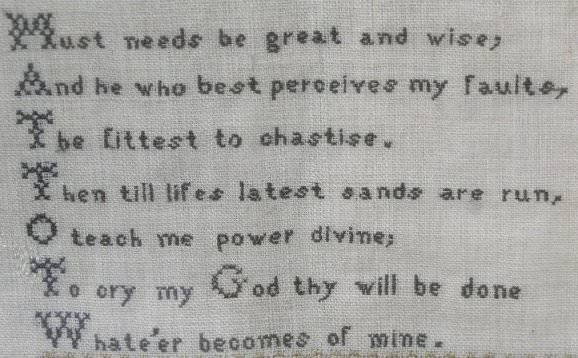 Must needs be great and wise;
And he who best perceives my faults,
The fittest to chastise.
Then till lifes latest sands are run,
O teach me power divine;
To cry my God thy will be done
Whate'er becomes of mine.